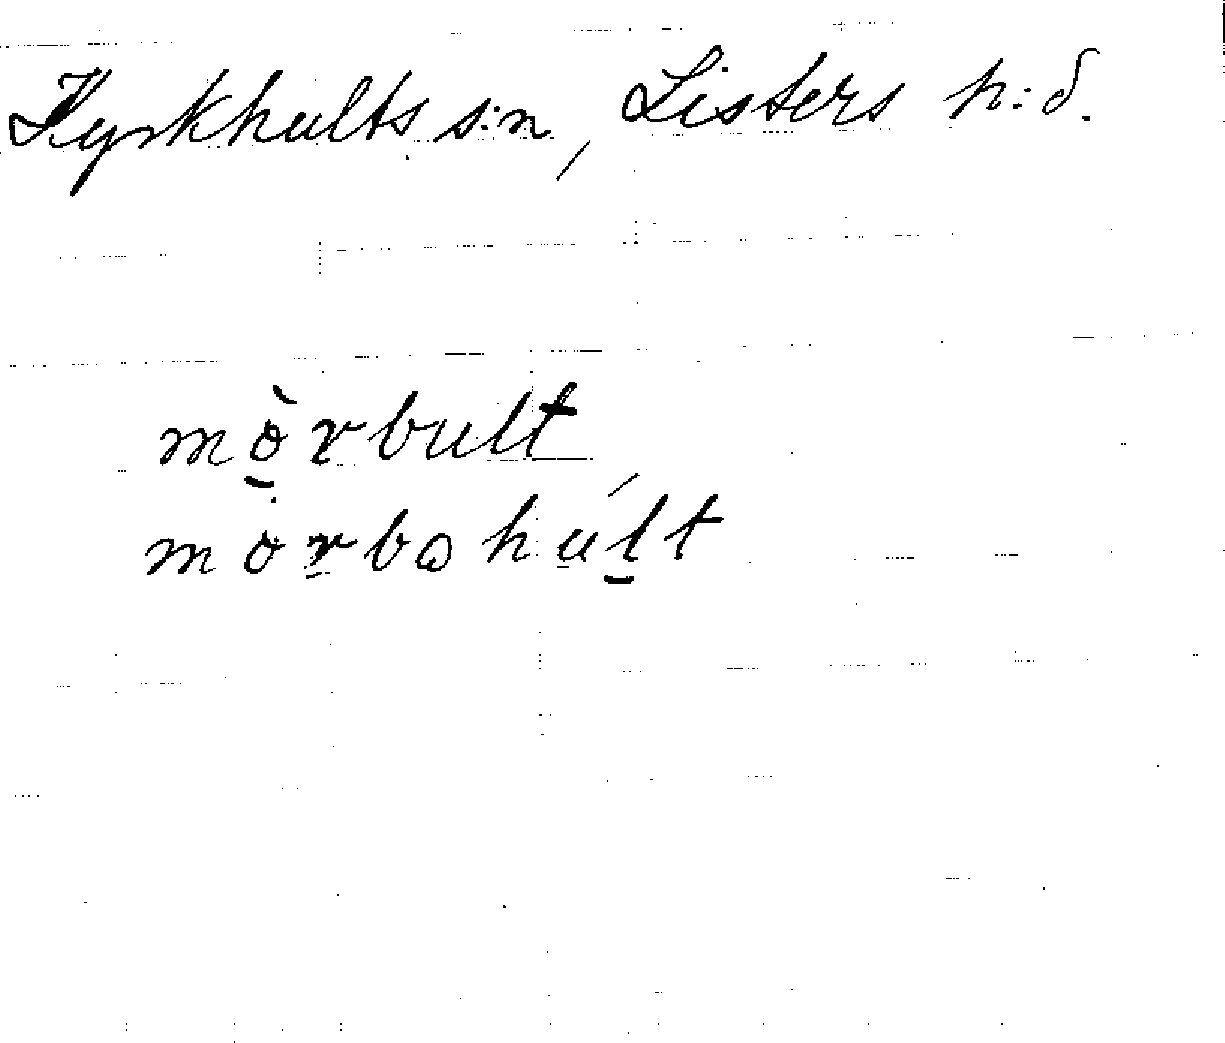 Kyrkhults s:n, Listers h:d.
mòrbult,
mòrbahult